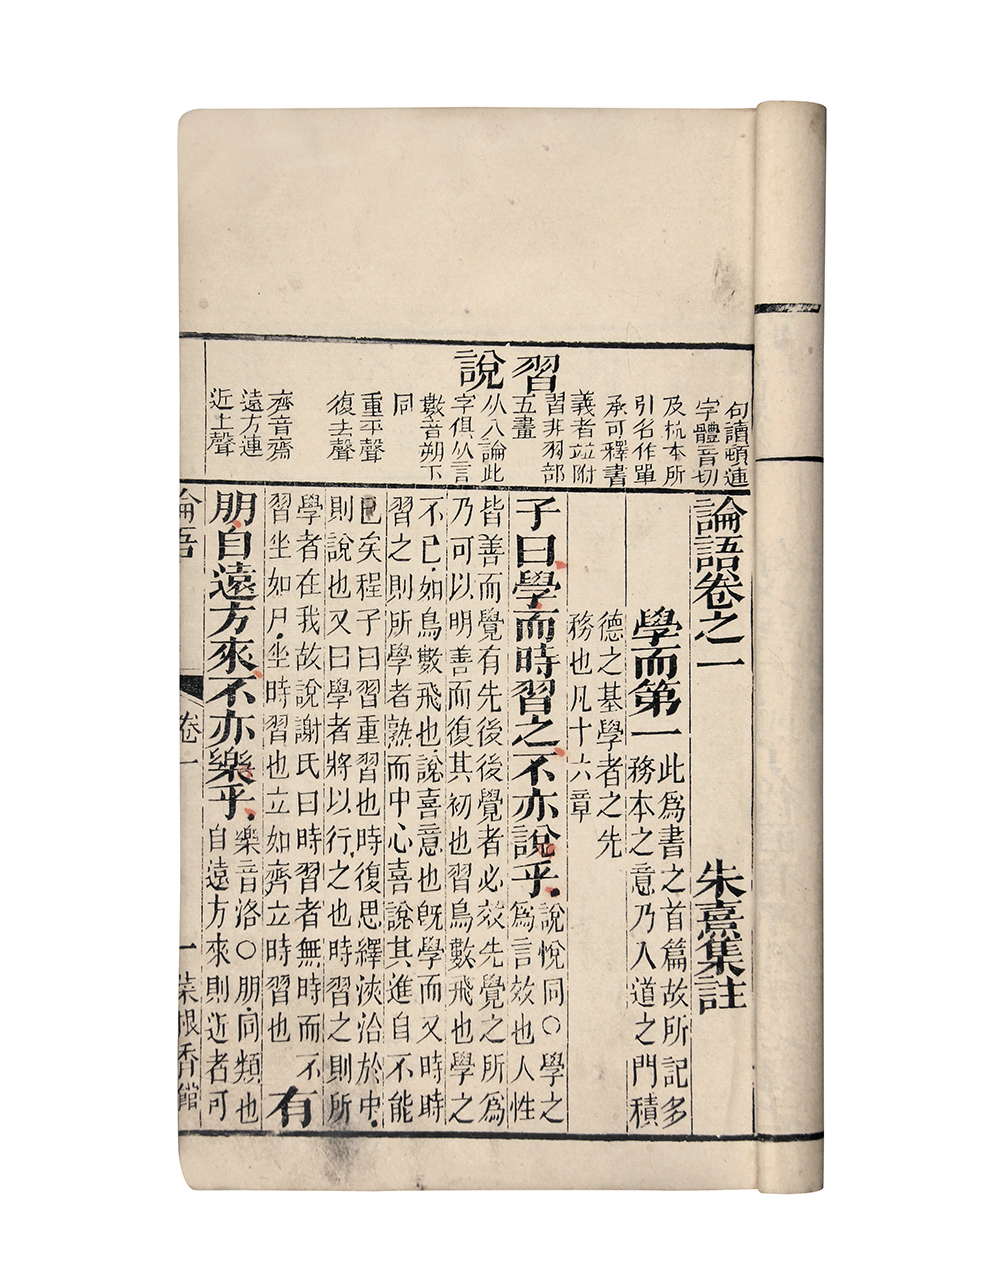 習
說
句讀頓連
字體音切
及杭本所
引名作單
承可釋書
義者竝附
習非羽部
五畫
从八論此
字俱从言
數音朔下
同
重平聲
復去聲
齊音齋
遠方連
近上聲
論語卷之一　朱熹集註
學而第一
此爲書之首篇故所記多
務本之意乃入道之門積
德之基學者之先
務也凡十六章
子曰學而時習之不亦說乎
說悅同○學之
爲言效也人性
皆善而覺有先後後覺者必效先覺之所爲
乃可以明善而復其初也習鳥數飛也學之
不已如鳥數飛也說喜意也旣學而又時時
習之則所學者熟而中心喜說其進自不能
已矣程子曰習重習也時復思繹浹洽於中
則說也又曰學者將以行之也時習之則所
學者在我故說謝氏曰時習者無時而不
習坐如尸坐時習也立如齊立時習也
有
朋自遠方來不亦樂乎
樂音洛○朋同類也
自遠方來則近者可
論語　卷一　一　菜根香館